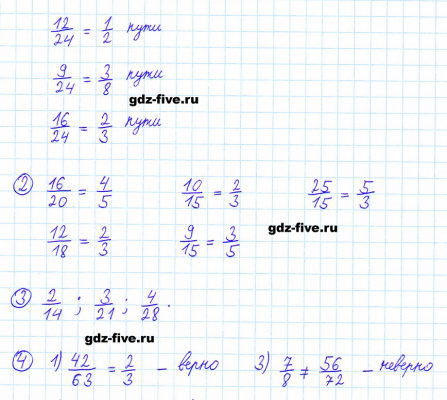 12/24 = 1/2 пути
9/24 = 3/8 пути
gdz-five.ru
16/24 = 2/3 пути
② 16/20 = 4/5 10/15 = 2/3 25/15 = 5/3
12/18 = 2/3 9/15 = 3/5 gdz-five.ru
③ 2/14 ; 3/21 ; 4/28 .
gdz-five.ru
④ 1) 42/63 = 2/3 – верно 3) 7/8 ≠ 56/72 – неверно